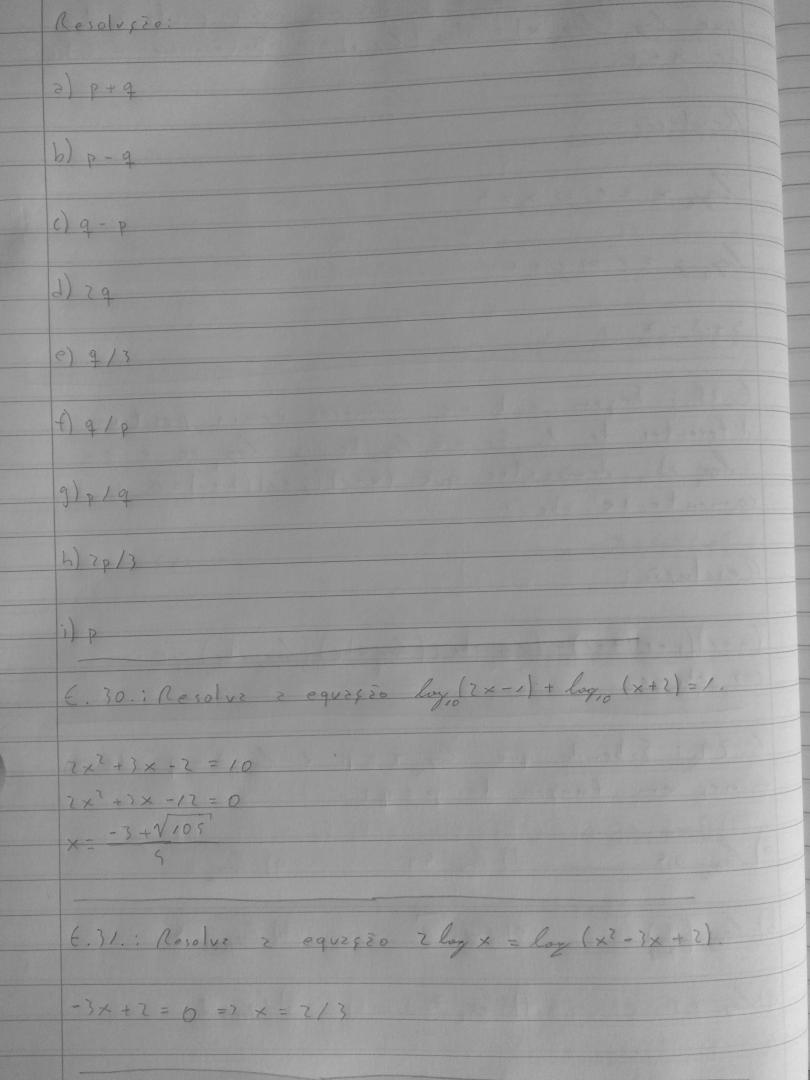 Resolução:
a) p + q
b) p - q
c) q - p
d) 2q
e) q/3
f) q/p
g) p/q
h) 2p/3
i) p
E. 30.: Resolva a equação log₁₀(2x-1) + log₁₀(x+2) = 1.
2x² + 3x - 2 = 10
2x² + 3x - 12 = 0
x = (-3 + √105)/4
E. 31.: Resolva a equação 2 log x = log (x² - 3x + 2).
-3x + 2 = 0 => x = 2/3